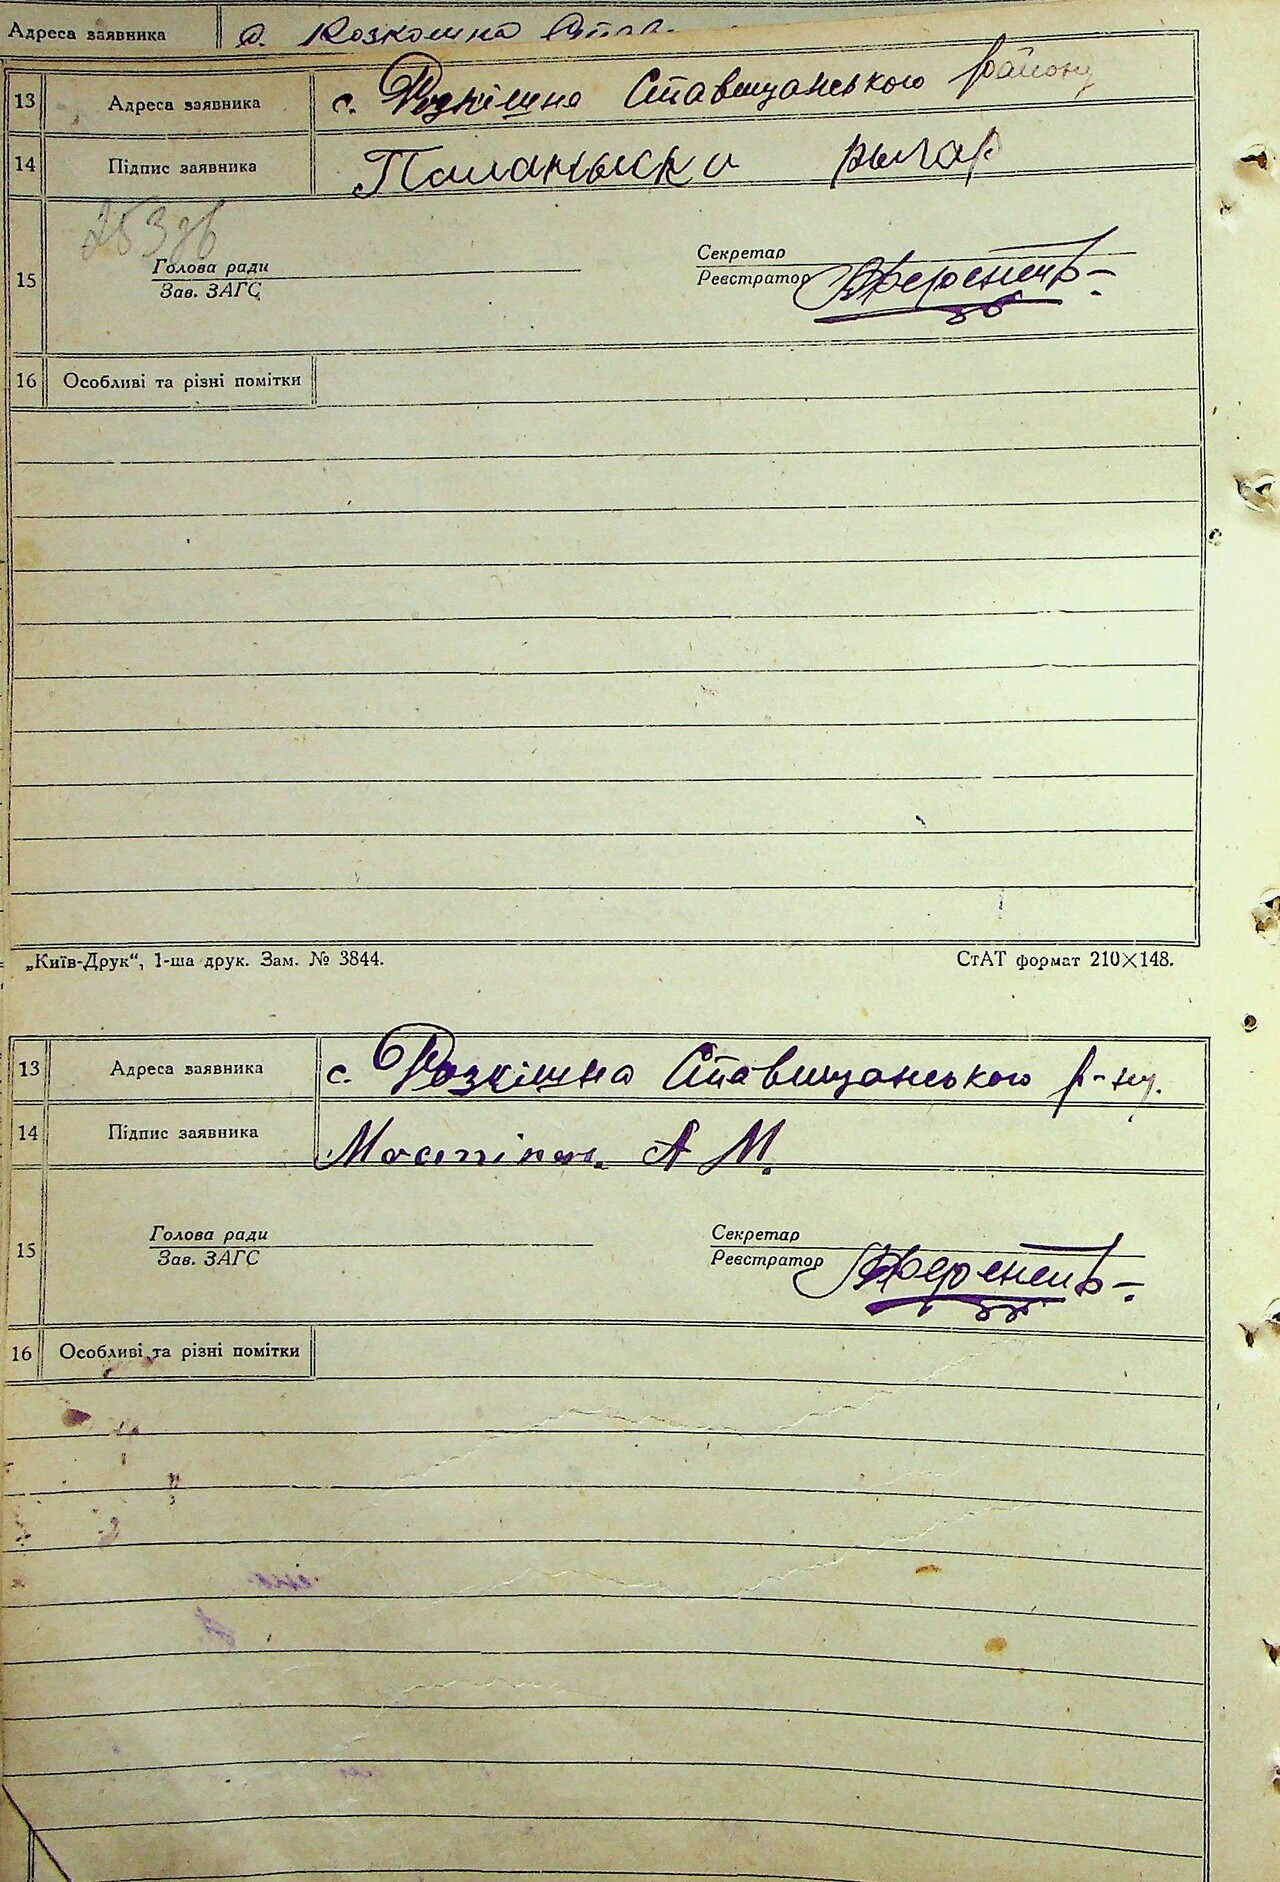 Адреса заявника с. Розкошна Став
13 Адреса заявника с. Розкішна Ставищанського району
14 Підпис заявника
Секретар
15 Голова ради Реєстратор
Зав. ЗАГС
16 Особливі та різні помітки
„Київ-Друк“, 1-ша друк. Зам. № 3844. СтАТ формат 210×148.
13 Адреса заявника с. Розкішна Ставищанського р-ну.
14 Підпис заявника А М.
Голова ради Секретар
15 Зав. ЗАГС Реєстратор
16 Особливі та різні помітки